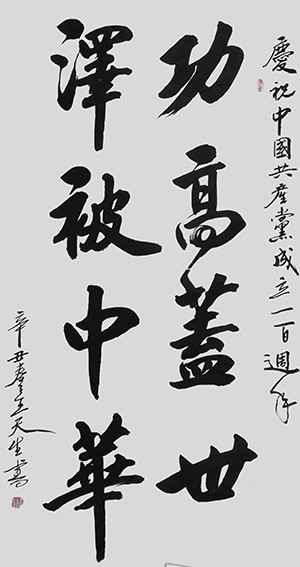 慶祝中國共產黨成立一百週年
功高蓋世
澤被中華
辛丑春王天生書